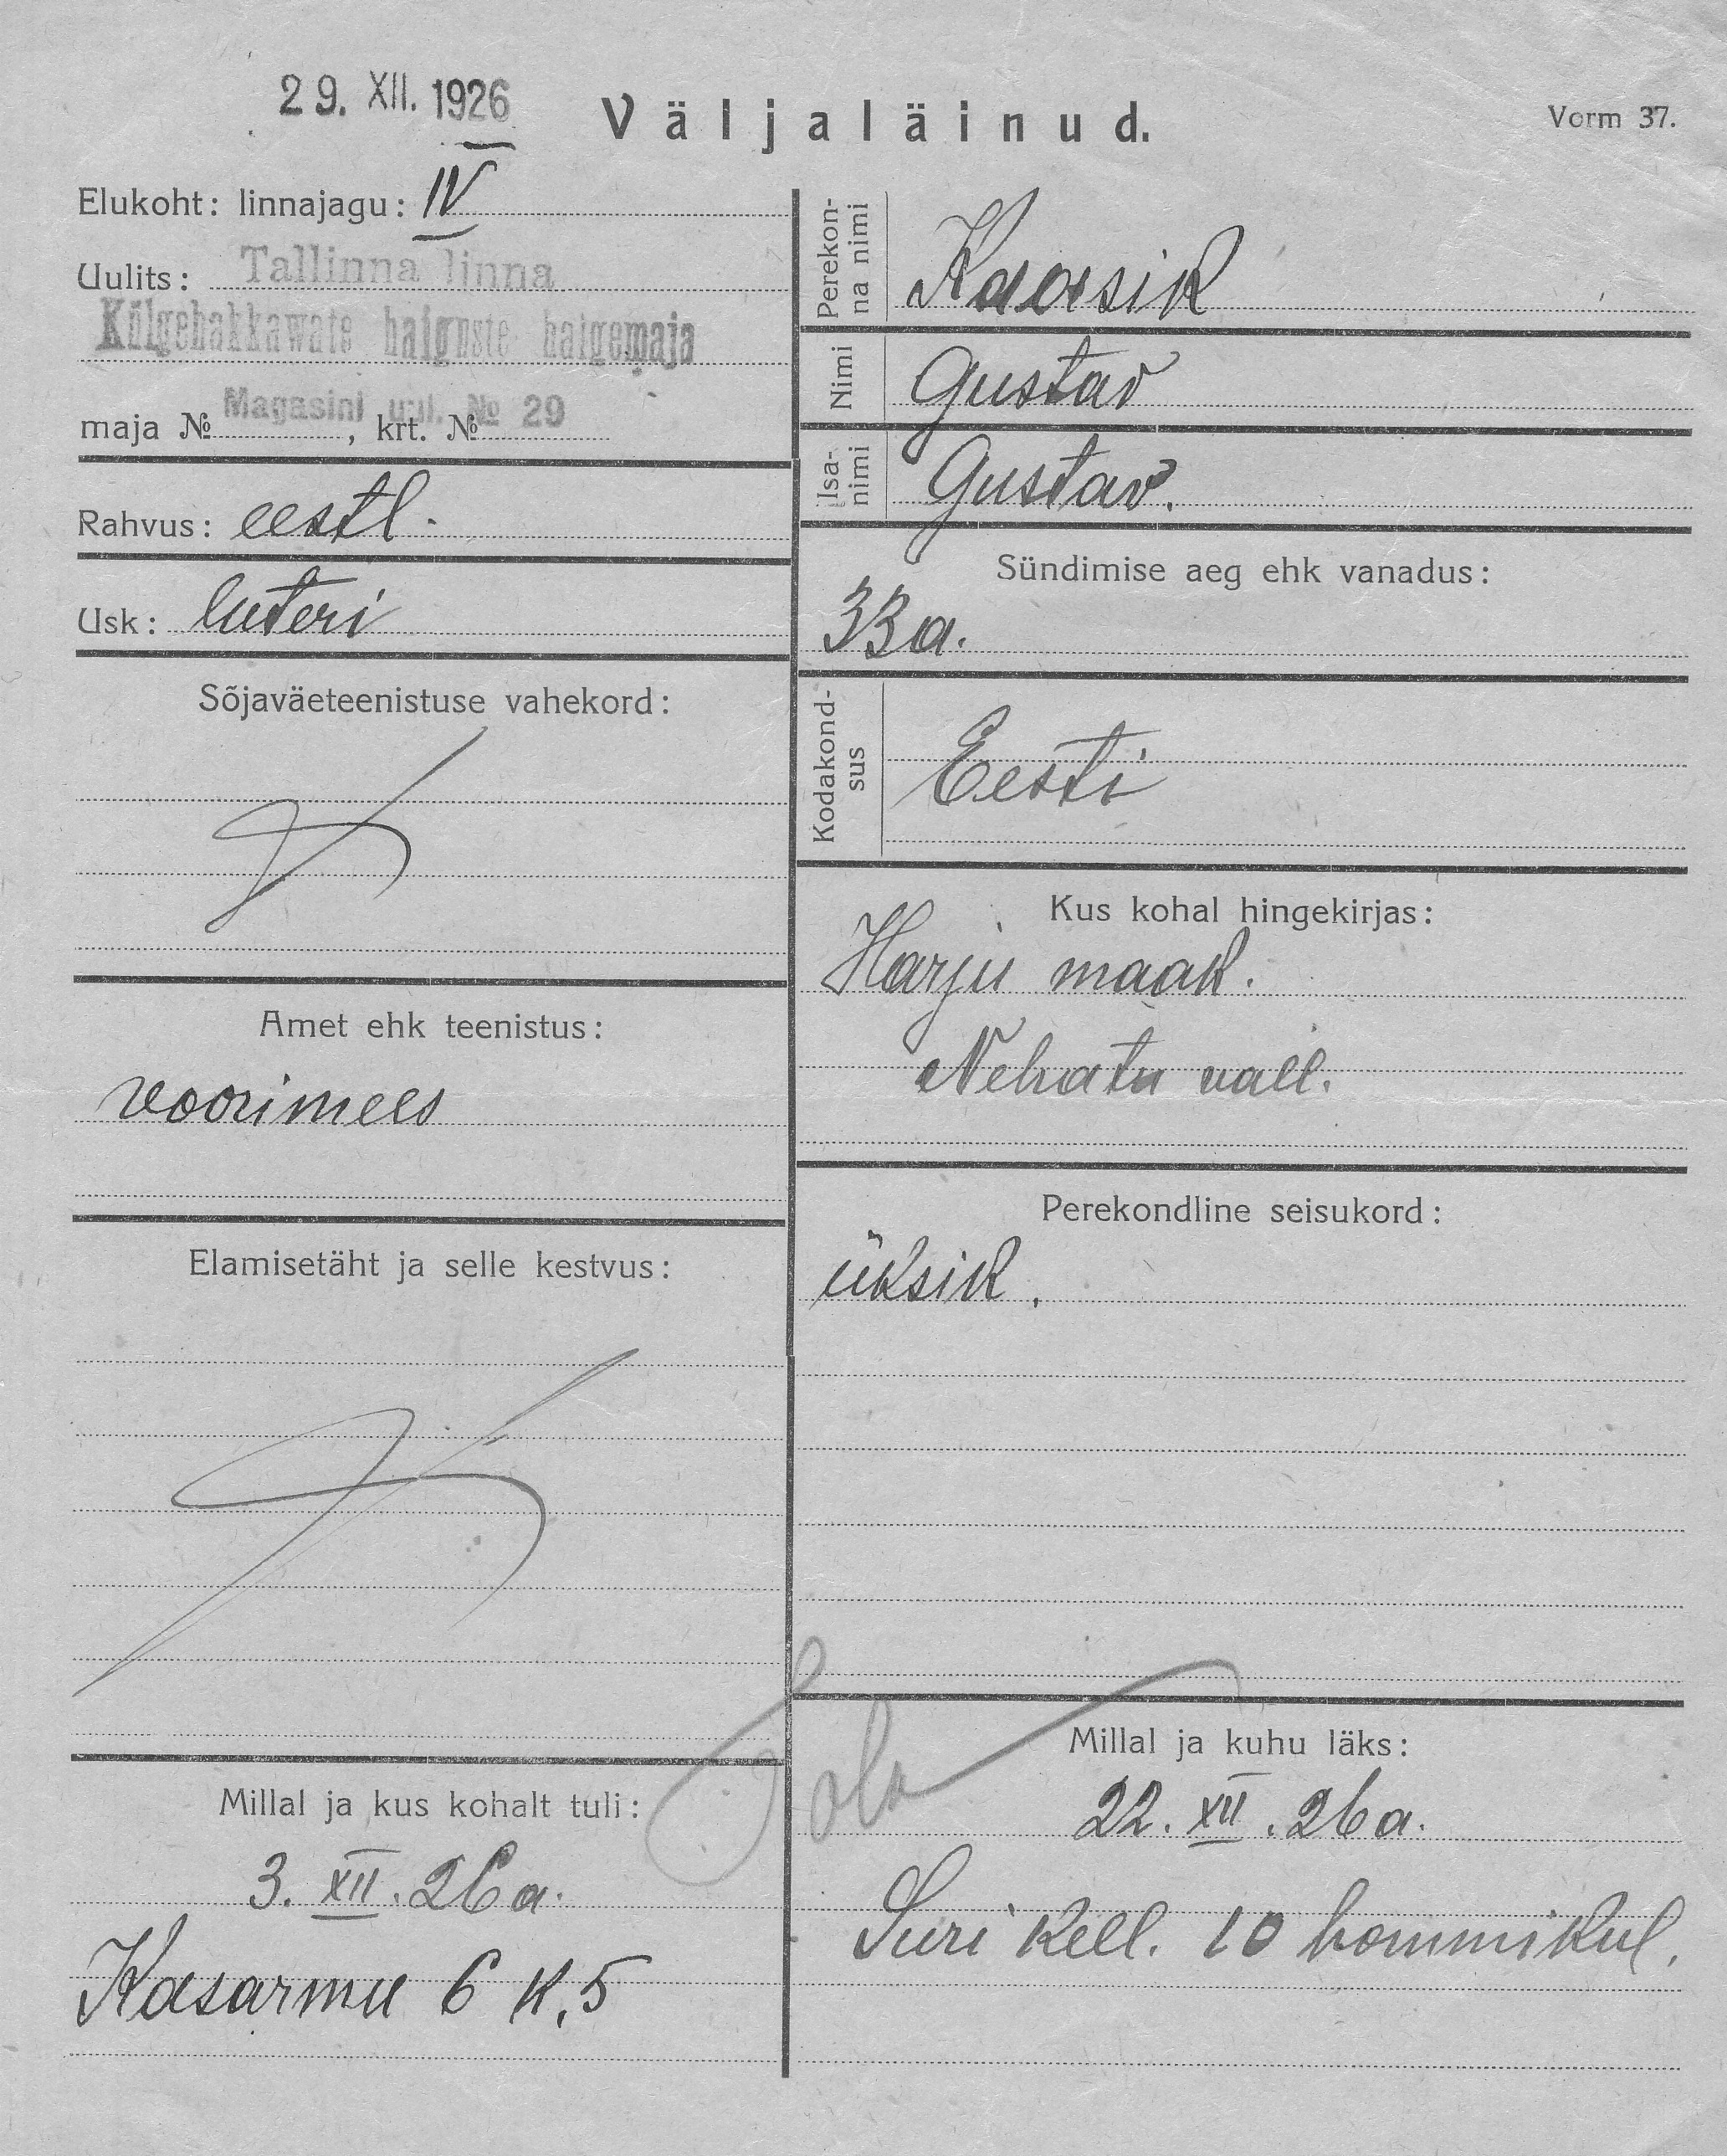 29. XII. 1926
Väljaläinud.
Vorm 37.
Elukoht: linnajagu: IV
Uulits: Tallinna linna
Külgehakkawate haiguste haigemaja
Magasini uul. № 29
maja № , krt. №
Rahvus: eestl.
Usk: luteri
Sõjaväeteenistuse vahekord:
Amet ehk teenistus:
voorimees
Elamisetäht ja selle kestvus:
Millal ja kus kohalt tuli:
3. XII. 26 a.
Kasarmu 6 k. 5
Perekonna-
na nimi Kaasik
Nimi Gustav
Isa-
nimi Gustav.
Sündimise aeg ehk vanadus:
33 a.
Kodakond-
sus Eesti
Kus kohal hingekirjas:
Harju maak.
Nehatu vall.
Perekondline seisukord:
üksik.
Millal ja kuhu läks:
22. XII. 26 a.
Suri kell. 10 hommikul.